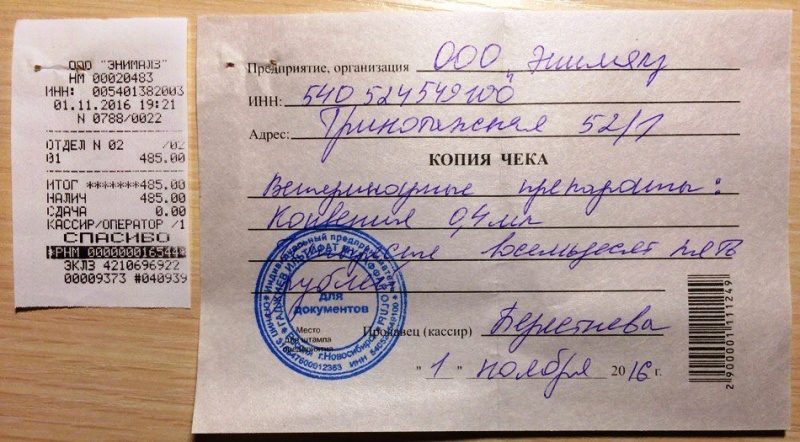 ООО "ЭНИМАЛЗ"
НМ 00020483
ИНН: 005401382003
01.11.2016 19:21
N 0788/0022
ОТДЕЛ N 02 /02
01 485.00
ИТОГ *******485.00
НАЛИЧ 485.00
СДАЧА 0.00
КАССИР/ОПЕРАТОР /1
СПАСИБО
РНМ 00000001654
ЭКЛЗ 4210696922
00009373 #040939
Предприятие, организация ООО "Энималз
ИНН: 540 524549100
Адрес: 52/1
КОПИЯ ЧЕКА
Ветеринарные препараты:
Конвения 0,4 мл
Четыреста восемьдесят пять
рублей
Индивидуальный предприниматель
для
документов
г.Новосибирск
Место
для штампа
предприятия
Продавец (кассир)
"1" ноября 2016 г.
2900001111249